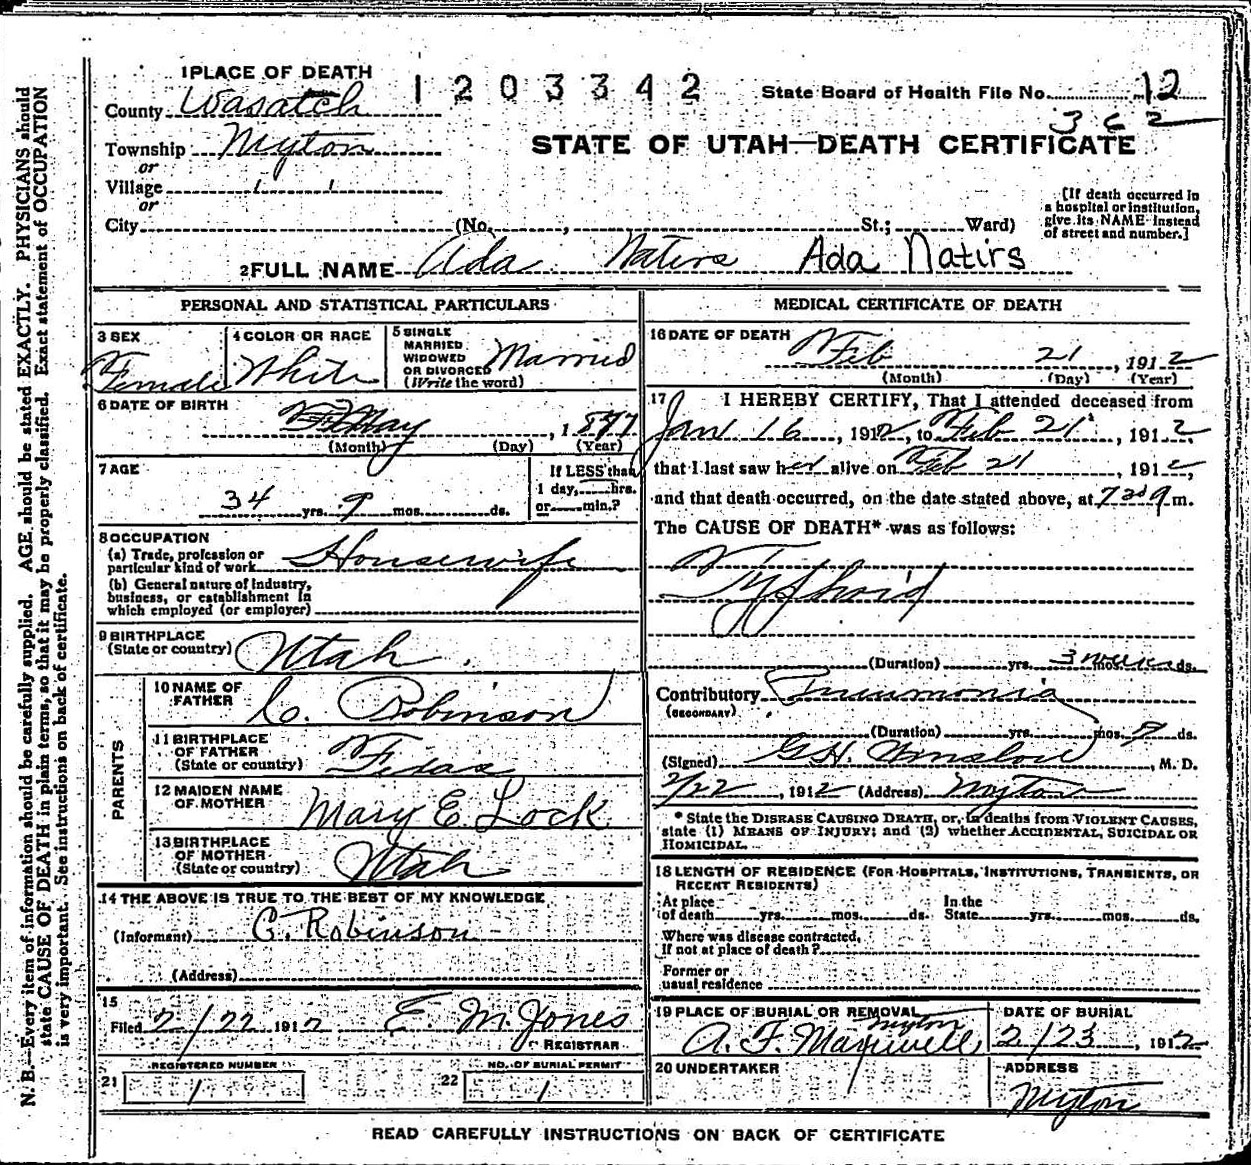 1 PLACE OF DEATH
1203342
State Board of Health File No. 12
County Wasatch
362
Township Myton
STATE OF UTAH—DEATH CERTIFICATE
or
Village
or
City (No. , St.; Ward)
[If death occurred in
a hospital or institution,
give its NAME instead
of street and number.]
2 FULL NAME Ada Natirs Ada Natirs
PERSONAL AND STATISTICAL PARTICULARS
3 SEX
Female
4 COLOR OR RACE
White
5 SINGLE
MARRIED
WIDOWED
OR DIVORCED
(Write the word)
Married
6 DATE OF BIRTH
May , 1877
(Month) (Day) (Year)
7 AGE
34 yrs. 9 mos. ds.
If LESS than
1 day, hrs.
or min.?
8 OCCUPATION
(a) Trade, profession or
particular kind of work Housewife
(b) General nature of industry,
business, or establishment in
which employed (or employer)
9 BIRTHPLACE
(State or country) Utah
PARENTS
10 NAME OF
FATHER C. Robinson
11 BIRTHPLACE
OF FATHER
(State or country) Texas
12 MAIDEN NAME
OF MOTHER Mary E. Lock
13 BIRTHPLACE
OF MOTHER
(State or country) Utah
14 THE ABOVE IS TRUE TO THE BEST OF MY KNOWLEDGE
(Informant) C. Robinson
(Address)
15
Filed 2/22 1912 E. M. Jones
REGISTRAR
REGISTERED NUMBER
21 1
NO. OF BURIAL PERMIT
22 1
MEDICAL CERTIFICATE OF DEATH
16 DATE OF DEATH
Feb 21 , 1912
(Month) (Day) (Year)
17 I HEREBY CERTIFY, That I attended deceased from
Jan 16 , 1912, to Feb 21 , 1912,
that I last saw her alive on Feb 21 , 1912,
and that death occurred, on the date stated above, at m.
The CAUSE OF DEATH* was as follows:
Typhoid
(Duration) yrs. 3 weeks mos. ds.
Contributory Pneumonia
(SECONDARY)
(Duration) yrs. mos. 9 ds.
(Signed) G. H. Winslow , M. D.
2/22 , 1912 (Address) Myton
* State the DISEASE CAUSING DEATH, or, in deaths from VIOLENT CAUSES,
state (1) MEANS OF INJURY; and (2) whether ACCIDENTAL, SUICIDAL OR
HOMICIDAL.
18 LENGTH OF RESIDENCE (FOR HOSPITALS, INSTITUTIONS, TRANSIENTS, OR
RECENT RESIDENTS)
At place
of death yrs. mos. ds.
In the
State yrs. mos. ds.
Where was disease contracted,
If not at place of death?
Former or
usual residence
19 PLACE OF BURIAL OR REMOVAL
Myton
A. F. Maxwell
DATE OF BURIAL
2/23 , 1912
20 UNDERTAKER
ADDRESS
Myton
READ CAREFULLY INSTRUCTIONS ON BACK OF CERTIFICATE
N. B.—Every item of information should be carefully supplied. AGE should be stated EXACTLY. PHYSICIANS should
state CAUSE OF DEATH in plain terms, so that it may be properly classified. Exact statement of OCCUPATION
is very important. See instructions on back of certificate.